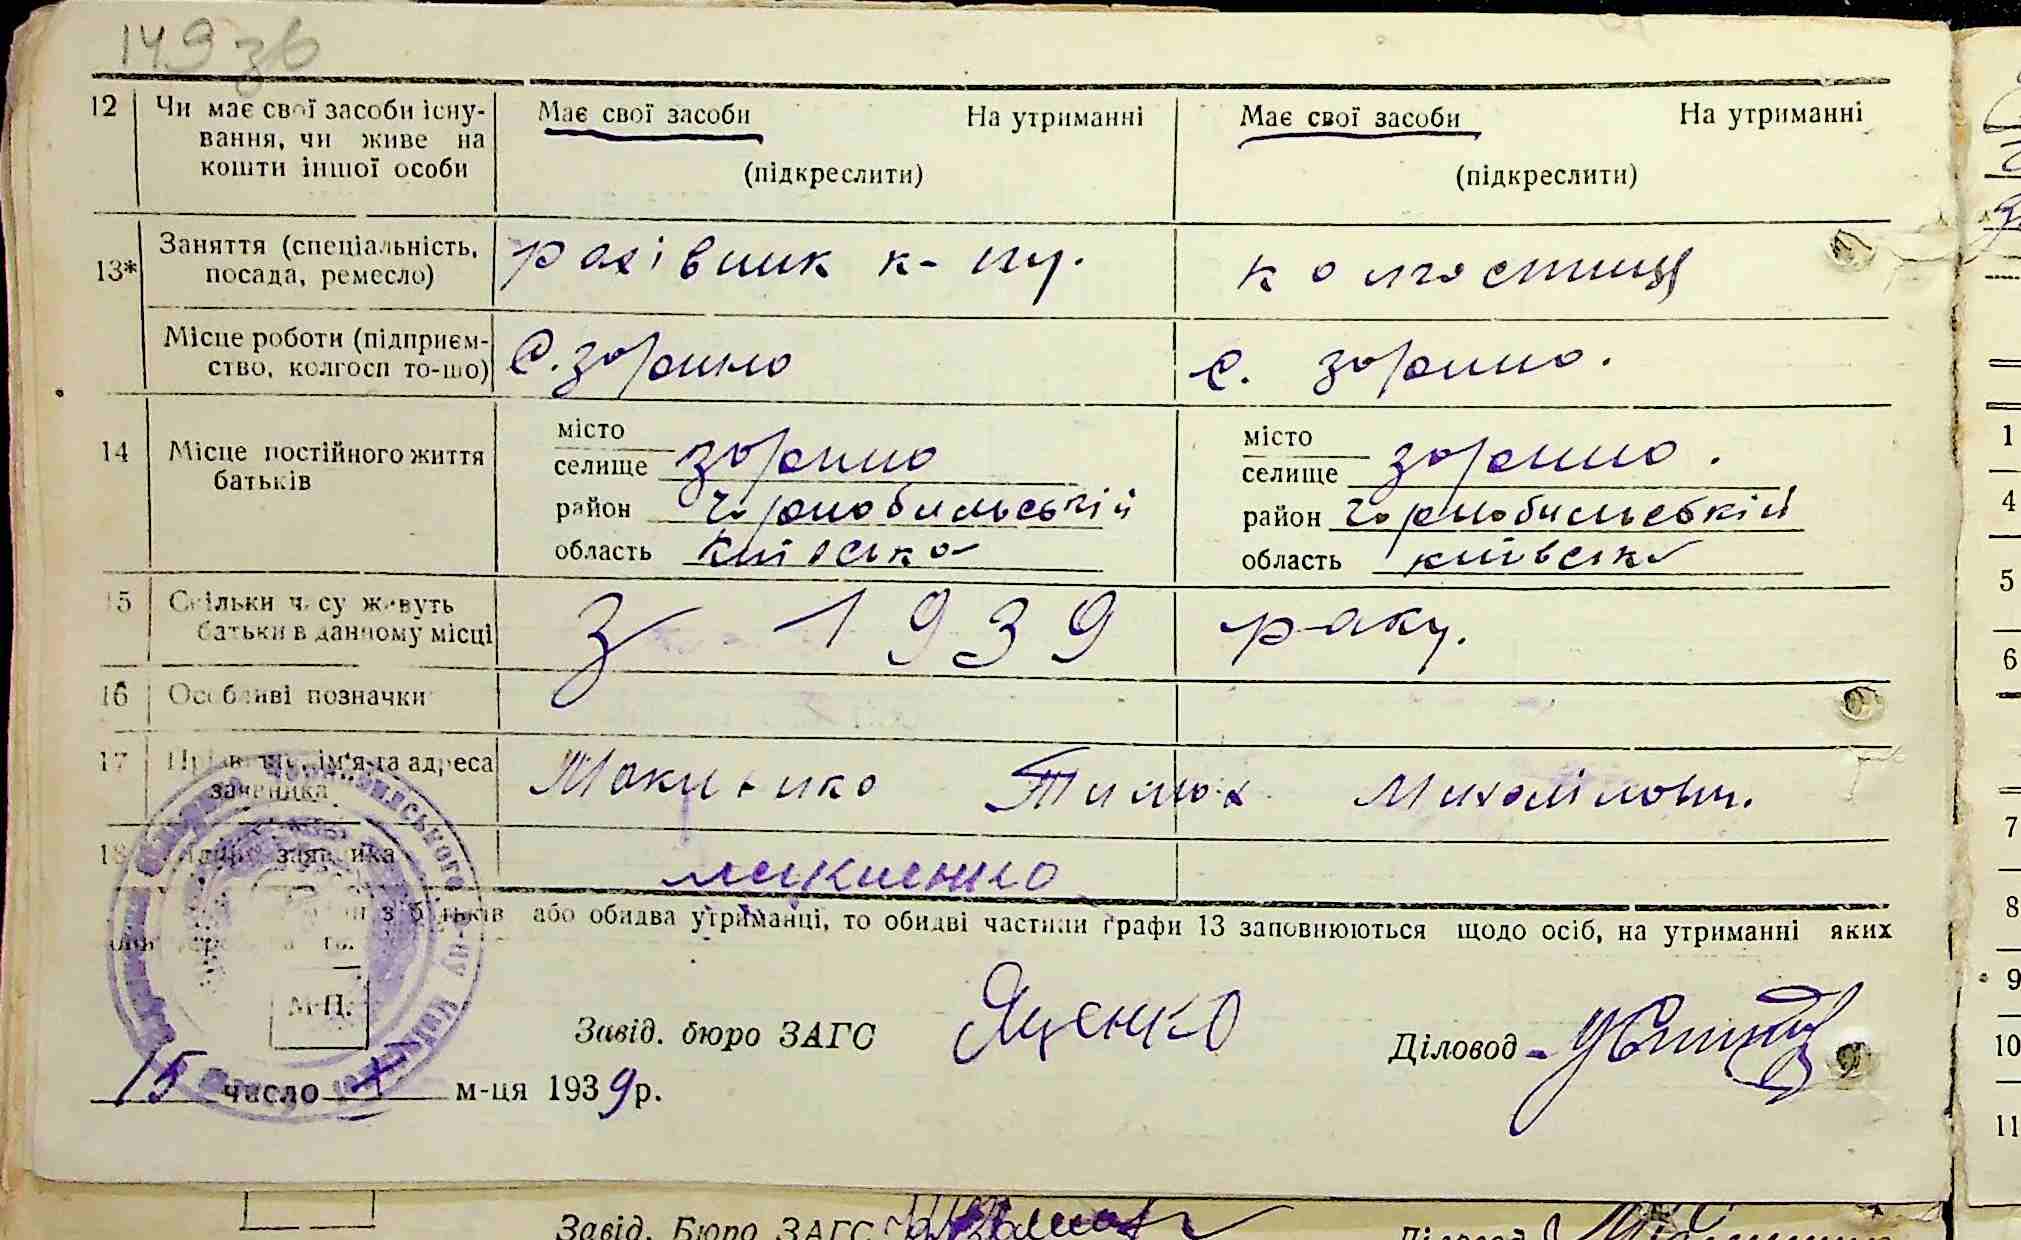 149 зв
12 Чи має свої засоби існу- Має свої засоби На утриманні Має свої засоби На утриманні
вання, чи живе на
кошти іншої особи (підкреслити) (підкреслити)
13* Заняття (спеціальність, рахівник к-пу. колгостниця
посада, ремесло)
Місце роботи (підприєм- С. Зорино с. Зорино.
ство, колгосп то-що)
14 Місце постійного життя місто місто
батьків селище Зорино селище Зорино.
район Чорнобильській район Чорнобильській
область Київська область Київська
15 Скільки часу живуть З 1939 року.
батьки в данному місці
16 Особливі позначки
17 Прізвище, ім'я та адреса Тимох Михайлович.
заявника
18 Підпис заявника Макиенко
з батьків або обидва утриманці, то обидві частини графи 13 заповнюються щодо осіб, на утриманні яких
М.П.
Завід. бюро ЗАГС Яценко Діловод
15 число X м-ця 1939 р.
Завід. Бюро ЗАГС Діловод
1
4
5
6
7
8
9
10
11